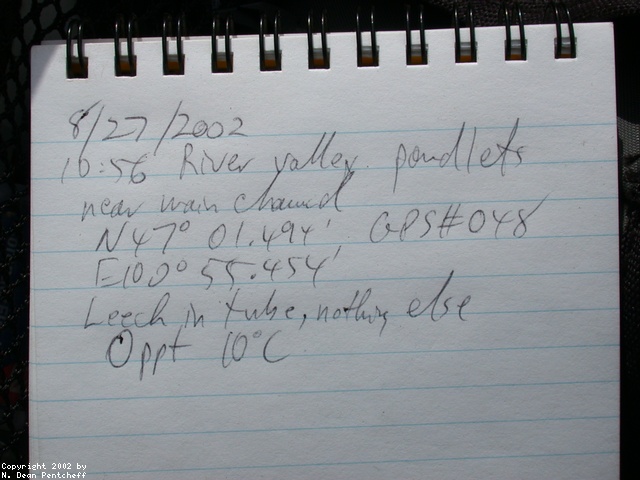 8/27/2002
10:56 River valley pondlets
near main channel
N47° 01.494', GPS#048
E100° 55.454'
Leech in tube, nothing else
0ppt 10°C
Copyright 2002 by
N. Dean Pentcheff